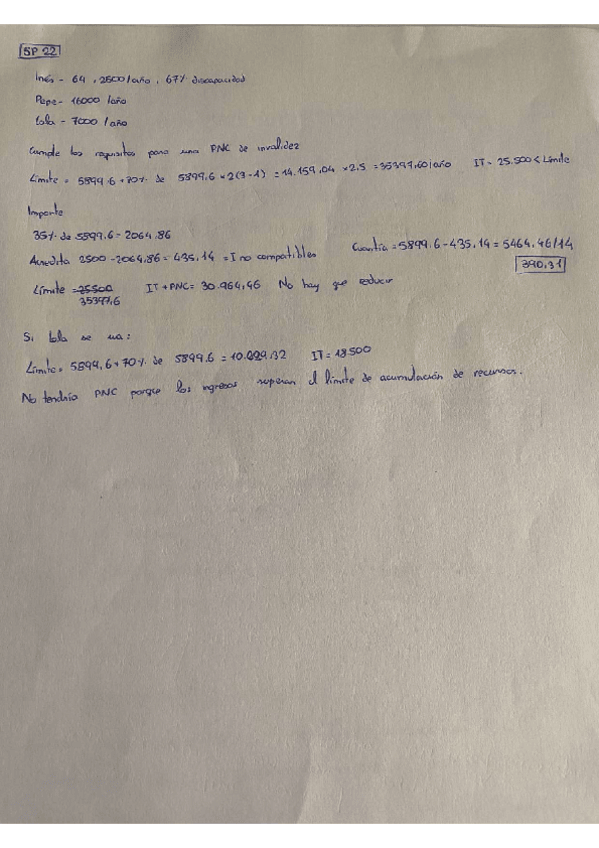 SP 22
Inés - 64, 2500/año, 67% discapacidad
Pepe - 16000 /año
Lola - 7000 /año
Cumple los requisitos para una PNC de invalidez
Límite = 5899.6 + 70% de 5899.6 x 2(3-1) = 14.159,04 x 2.5 = 35397,60/año IT = 25.500 < Límite
Importe
35% de 5899.6 = 2064.86
Acredita 2500 - 2064,86 = 435,14 = I no compatibles Cuantía = 5899.6 - 435.14 = 5464,46/14
390.31
Límite = 25500 IT + PNC = 30.964,46 No hay que reducir
35397,6
Si Lola se va:
Límite = 5899,6 + 70% de 5899.6 = 10.029,32 IT = 18.500
No tendría PNC porque los ingresos superan el límite de acumulación de recursos.